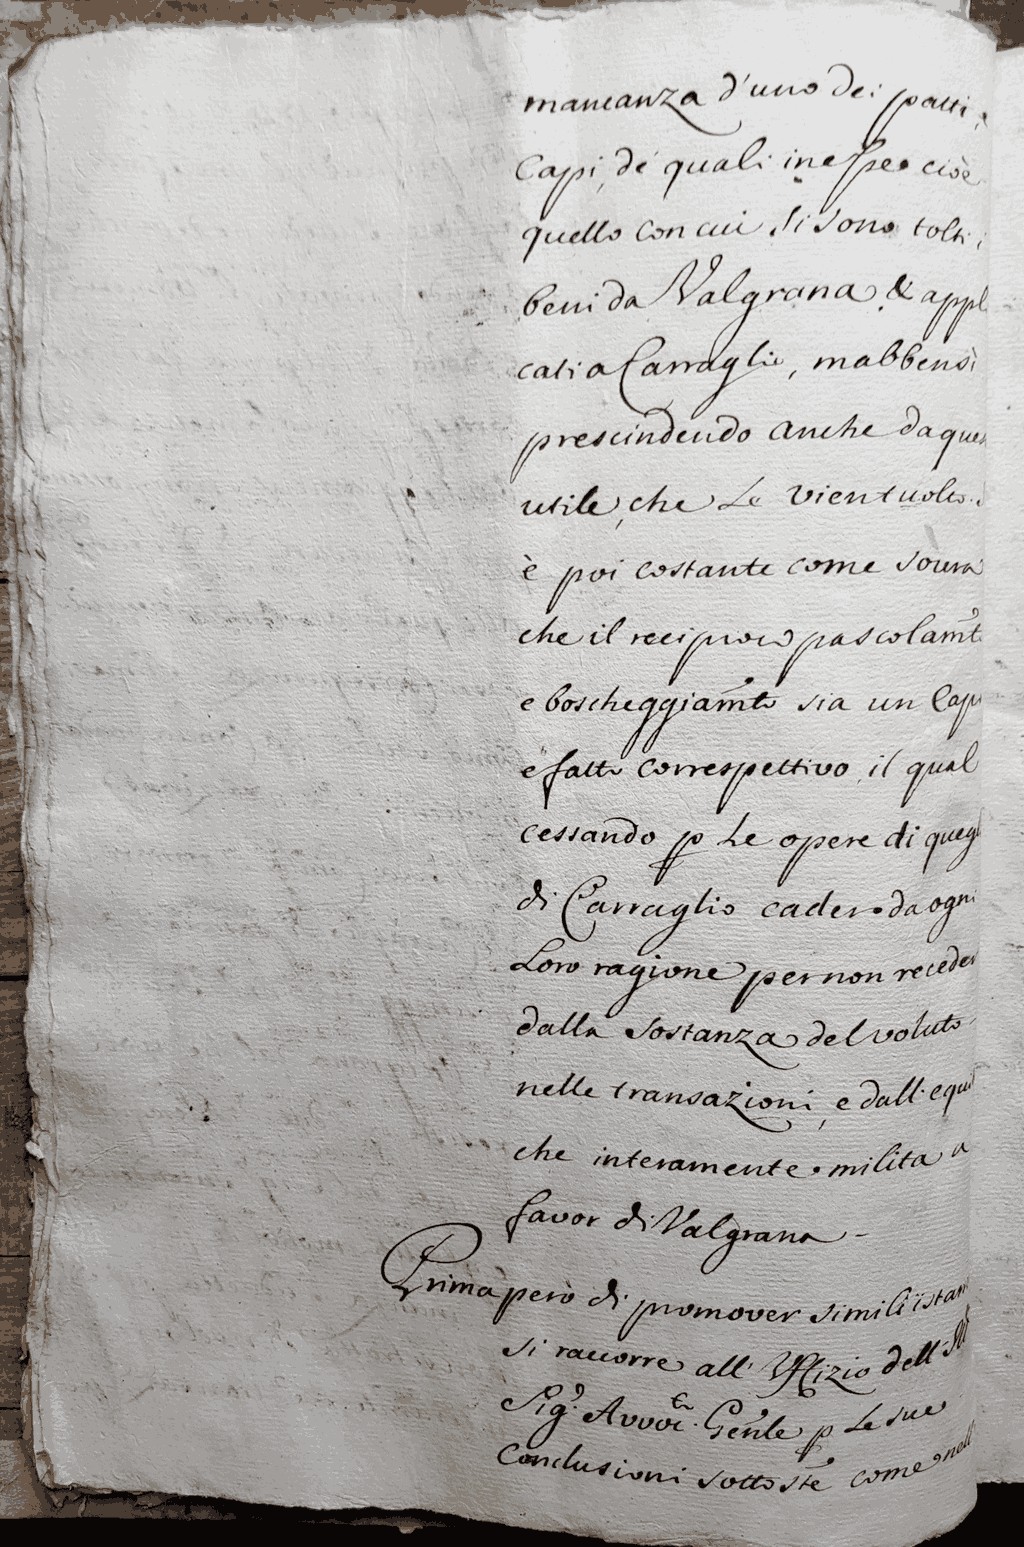 mancanza d'uno dei patti, e
Capi, de quali in esse cioè
quello con cui si sono tolti i
beni da Valgrana & appl
cati a Carraglio, mabbensì
prescindendo anche da ques
utile, che Le vien tuolto.
è poi costante come sovra
che il reciproco pascolam̃to
e boscheggiam̃to sia un Capo
e fatto correspettivo, il qual
cessando p Le opere di quegl
di Carraglio cadero da ogni
Loro ragione per non receder
dalla sostanza del voluto
nelle transazioni, e dall'equi
che interamente milita a
favor di Valgrana -
Prima però di promover simili istan
si raccorre all' Uffizio dell'
Sig.r Avvo.to Gen̄le p Le sue
Conclusioni sotto st̄e come nell